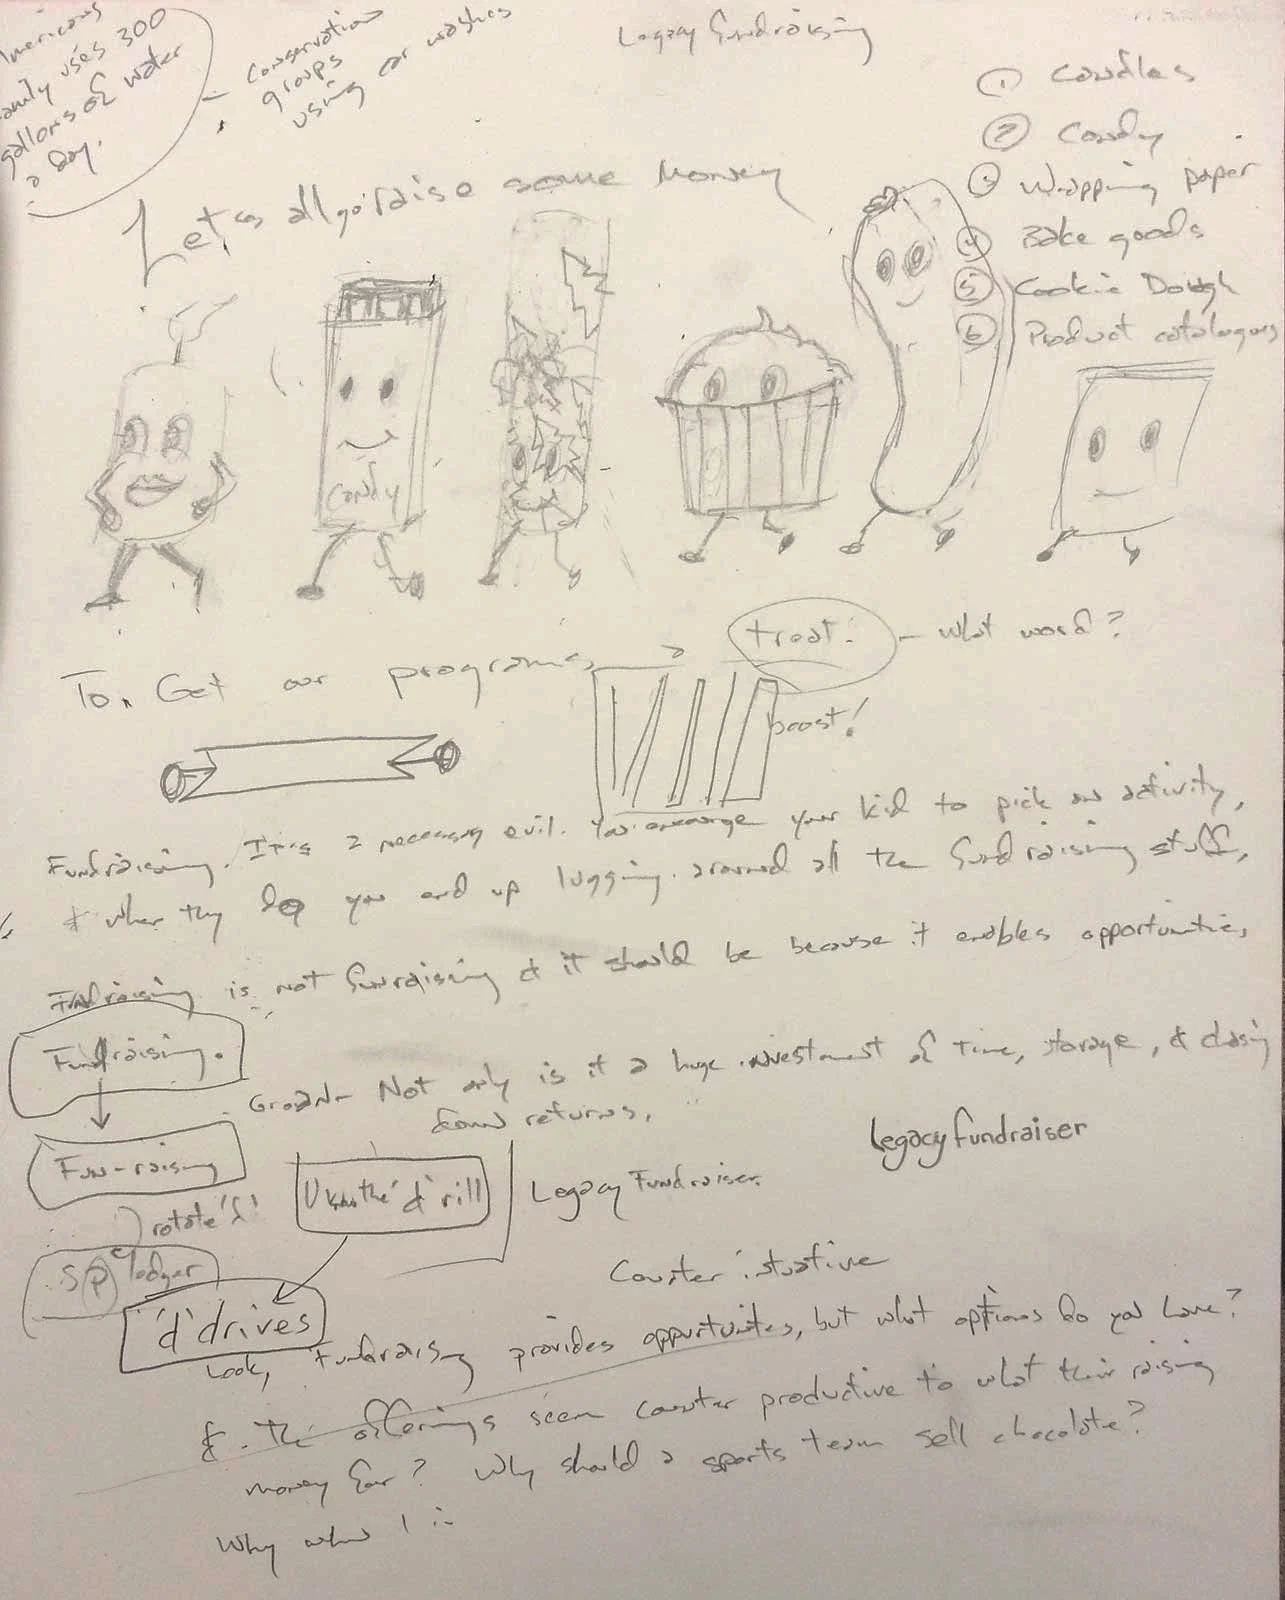 Americans
family uses 300
gallons of water
a day.
- Conservation
groups
using car washes
Legacy Fundraising
① Candles
② Candy
③ Wrapping paper
④ Bake goods
⑤ Cookie Dough
⑥ Product catalogues
Let us all go raise some money
Candy
To, Get our programs
treat. - What word?
boost!
Fundraising. It's a necessary evil. You encourage your kid to pick an activity,
& when they do you end up lugging around all the fundraising stuff,
Fundraising is not funraising & it should be because it enables opportunities,
Fundraising.
Groan - Not only is it a huge investment of time, storage, & chasing
down returns.
Fun-raising
rotate 'd'
U know the 'd' rill
Legacy Fundraiser.
Legacy Fundraiser
sp ledger
'd' drives
Counter intuative
Look, Fundraising provides opportunites, but what options do you have?
&. The offerings seem counter productive to what their raising
money for? Why should a sports team sell chocolate?
Why when I